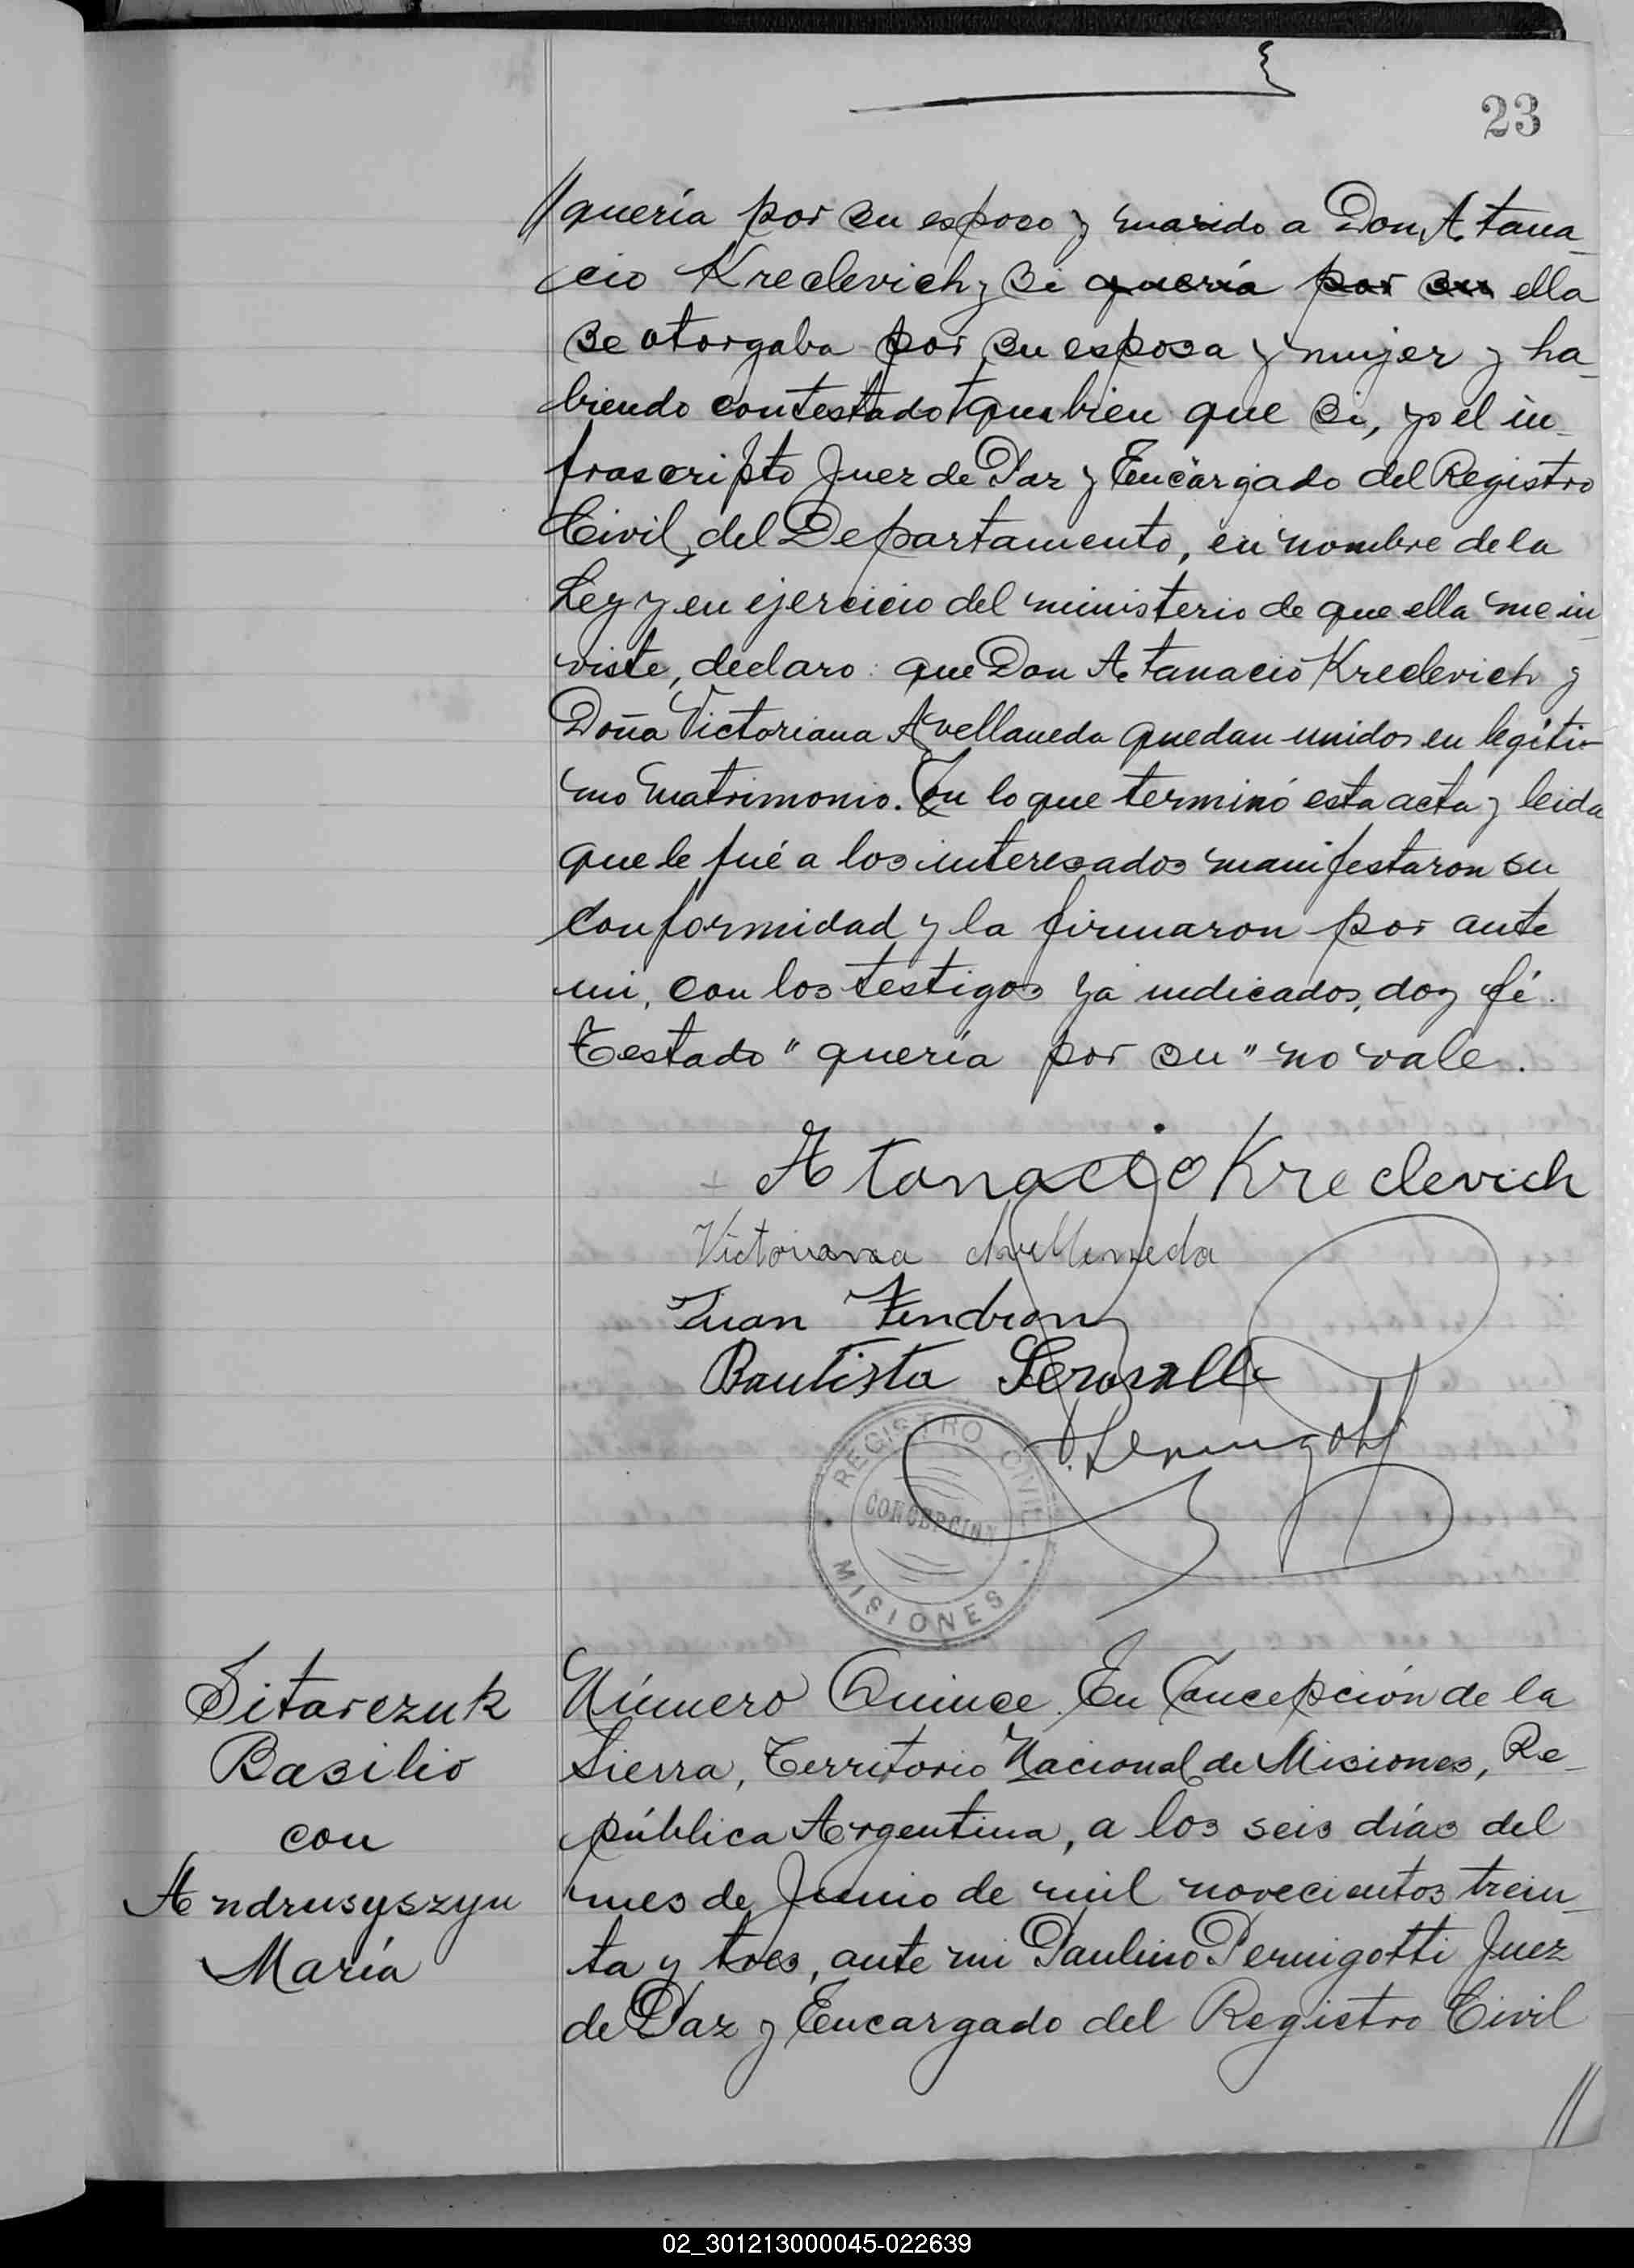 23
// quería por su esposo y marido a Don Atana-
cio Kreclevich y si quería por su ella
se otorgaba por su esposa y mujer y ha-
biendo contestado tambien que si, yo el in-
frascripto Juez de Paz y Encargado del Registro
Civil del Departamento, en nombre de la
Ley y en ejercicio del ministerio de que ella me in-
viste, declaro: que Don Atanacio Kreclevich y
Doña Victoriana Avellaneda quedan unidos en legíti-
mo matrimonio. En lo que terminó esta acta y leida
que le fué a los interesados manifestaron su
conformidad y la firmaron por ante
mi, con los testigos ya indicados, doy fé.
Testado "quería por su" no vale.
Atanacio Kreclevich
Victoriana Avellaneda
Juan
Bautista
REGISTRO CIVIL
CONCEPCION
MISIONES
Sitarczuk
Basilio
con
Andrusyszyn
María
Número Quince. En Concepción de la
Sierra, Territorio Nacional de Misiones, Re-
pública Argentina, a los seis días del
mes de Junio de mil novecientos trein-
ta y tres, ante mi Paulino Pernigotti Juez
de Paz y Encargado del Registro Civil
//
02_301213000045-022639